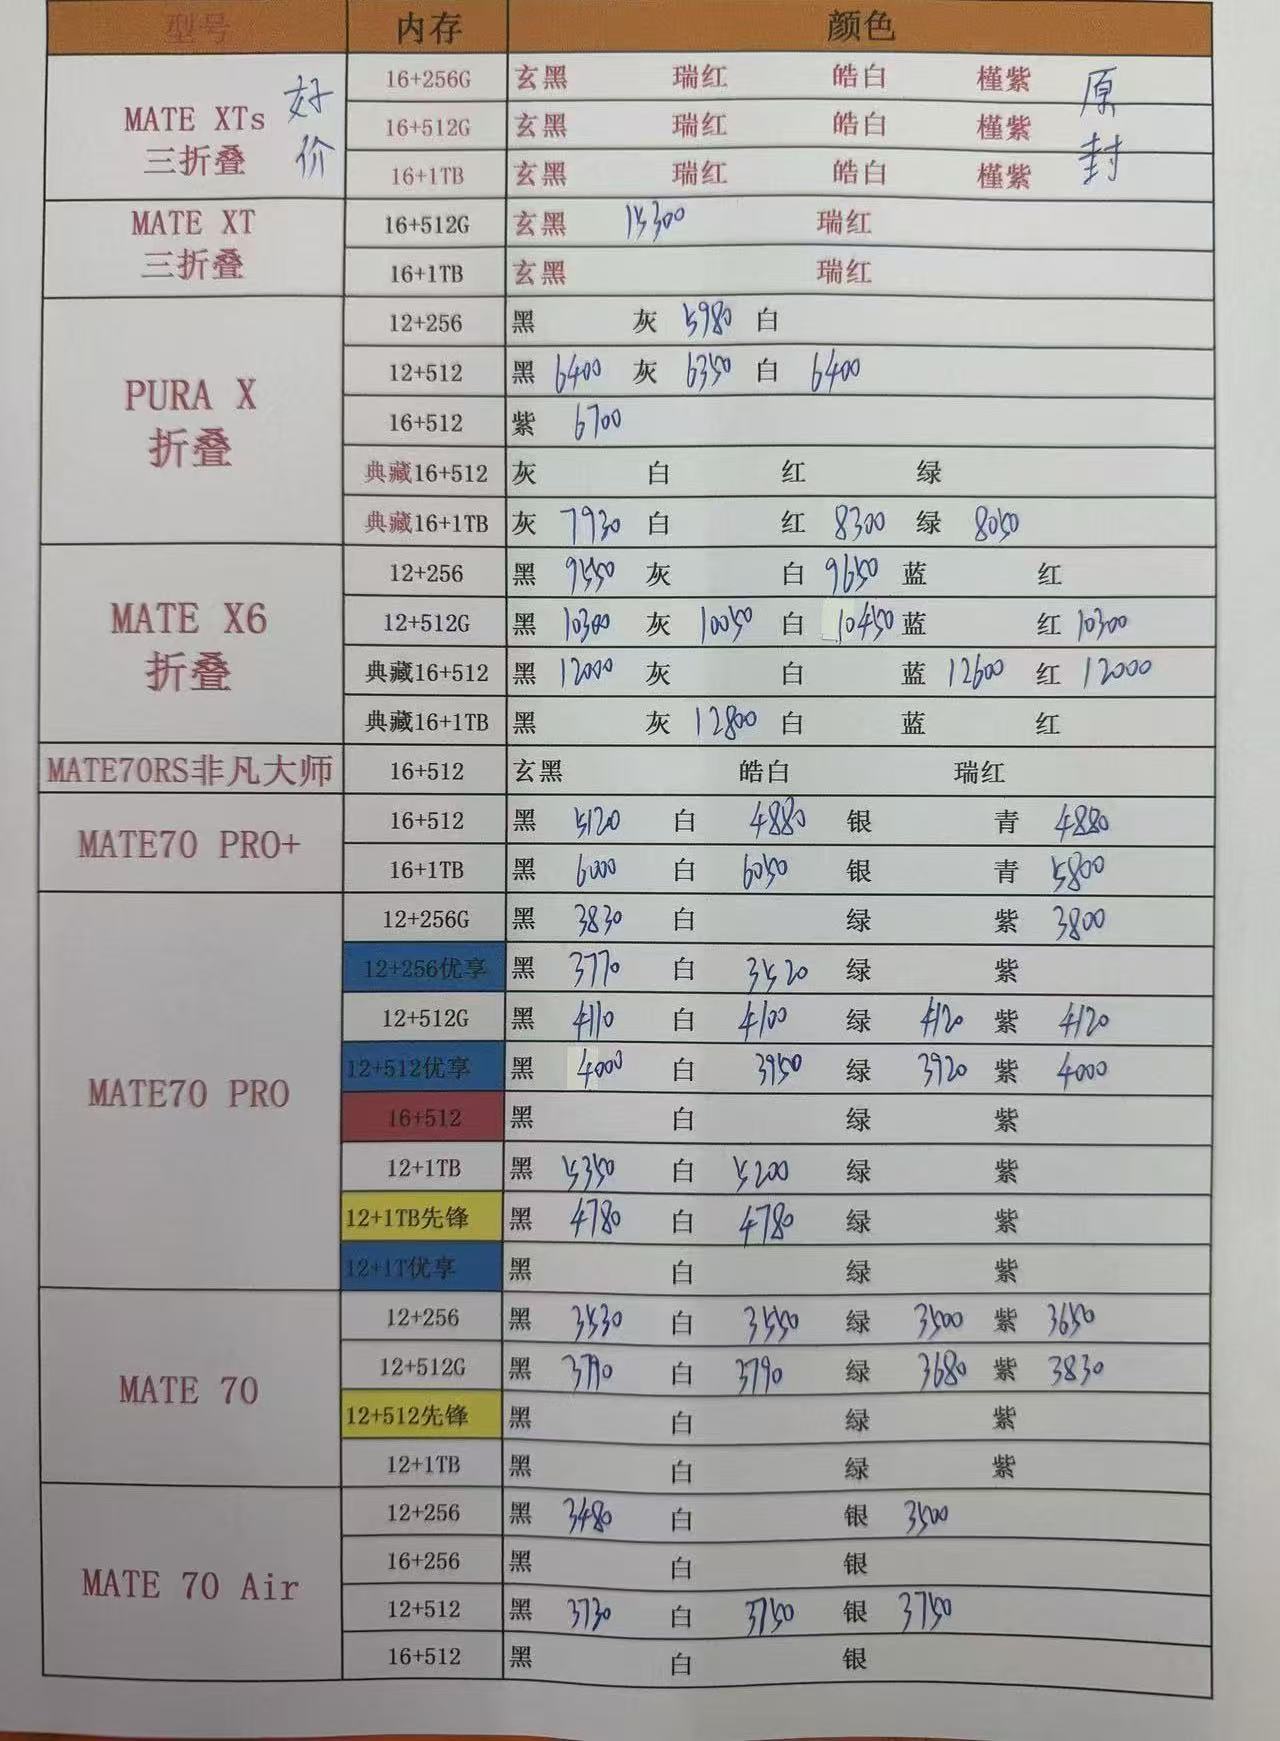 型号 内存 颜色
MATE XTs 三折叠 好价 原封
16+256G 玄黑 瑞红 皓白 槿紫
16+512G 玄黑 瑞红 皓白 槿紫
16+1TB 玄黑 瑞红 皓白 槿紫
MATE XT 三折叠
16+512G 玄黑 15300 瑞红
16+1TB 玄黑 瑞红
PURA X 折叠
12+256 黑 灰 5980 白
12+512 黑 6400 灰 6350 白 6400
16+512 紫 6700
典藏16+512 灰 白 红 绿
典藏16+1TB 灰 7930 白 红 8300 绿 8050
MATE X6 折叠
12+256 黑 9550 灰 白 9650 蓝 红
12+512G 黑 10300 灰 10050 白 10450 蓝 红 10300
典藏16+512 黑 12000 灰 白 蓝 12600 红 12000
典藏16+1TB 黑 灰 12800 白 蓝 红
MATE70RS非凡大师 16+512 玄黑 皓白 瑞红
MATE70 PRO+
16+512 黑 5120 白 4880 银 青 4880
16+1TB 黑 6000 白 6050 银 青 5800
MATE70 PRO
12+256G 黑 3830 白 绿 紫 3800
12+256优享 黑 3770 白 3520 绿 紫
12+512G 黑 4110 白 4100 绿 4120 紫 4120
12+512优享 黑 4000 白 3950 绿 3920 紫 4000
16+512 黑 白 绿 紫
12+1TB 黑 5350 白 5200 绿 紫
12+1TB先锋 黑 4780 白 4780 绿 紫
12+1T优享 黑 白 绿 紫
MATE 70
12+256 黑 3530 白 3550 绿 3500 紫 3650
12+512G 黑 3790 白 3790 绿 3680 紫 3830
12+512先锋 黑 白 绿 紫
12+1TB 黑 白 绿 紫
MATE 70 Air
12+256 黑 3480 白 银 3500
16+256 黑 白 银
12+512 黑 3730 白 3750 银 3750
16+512 黑 白 银